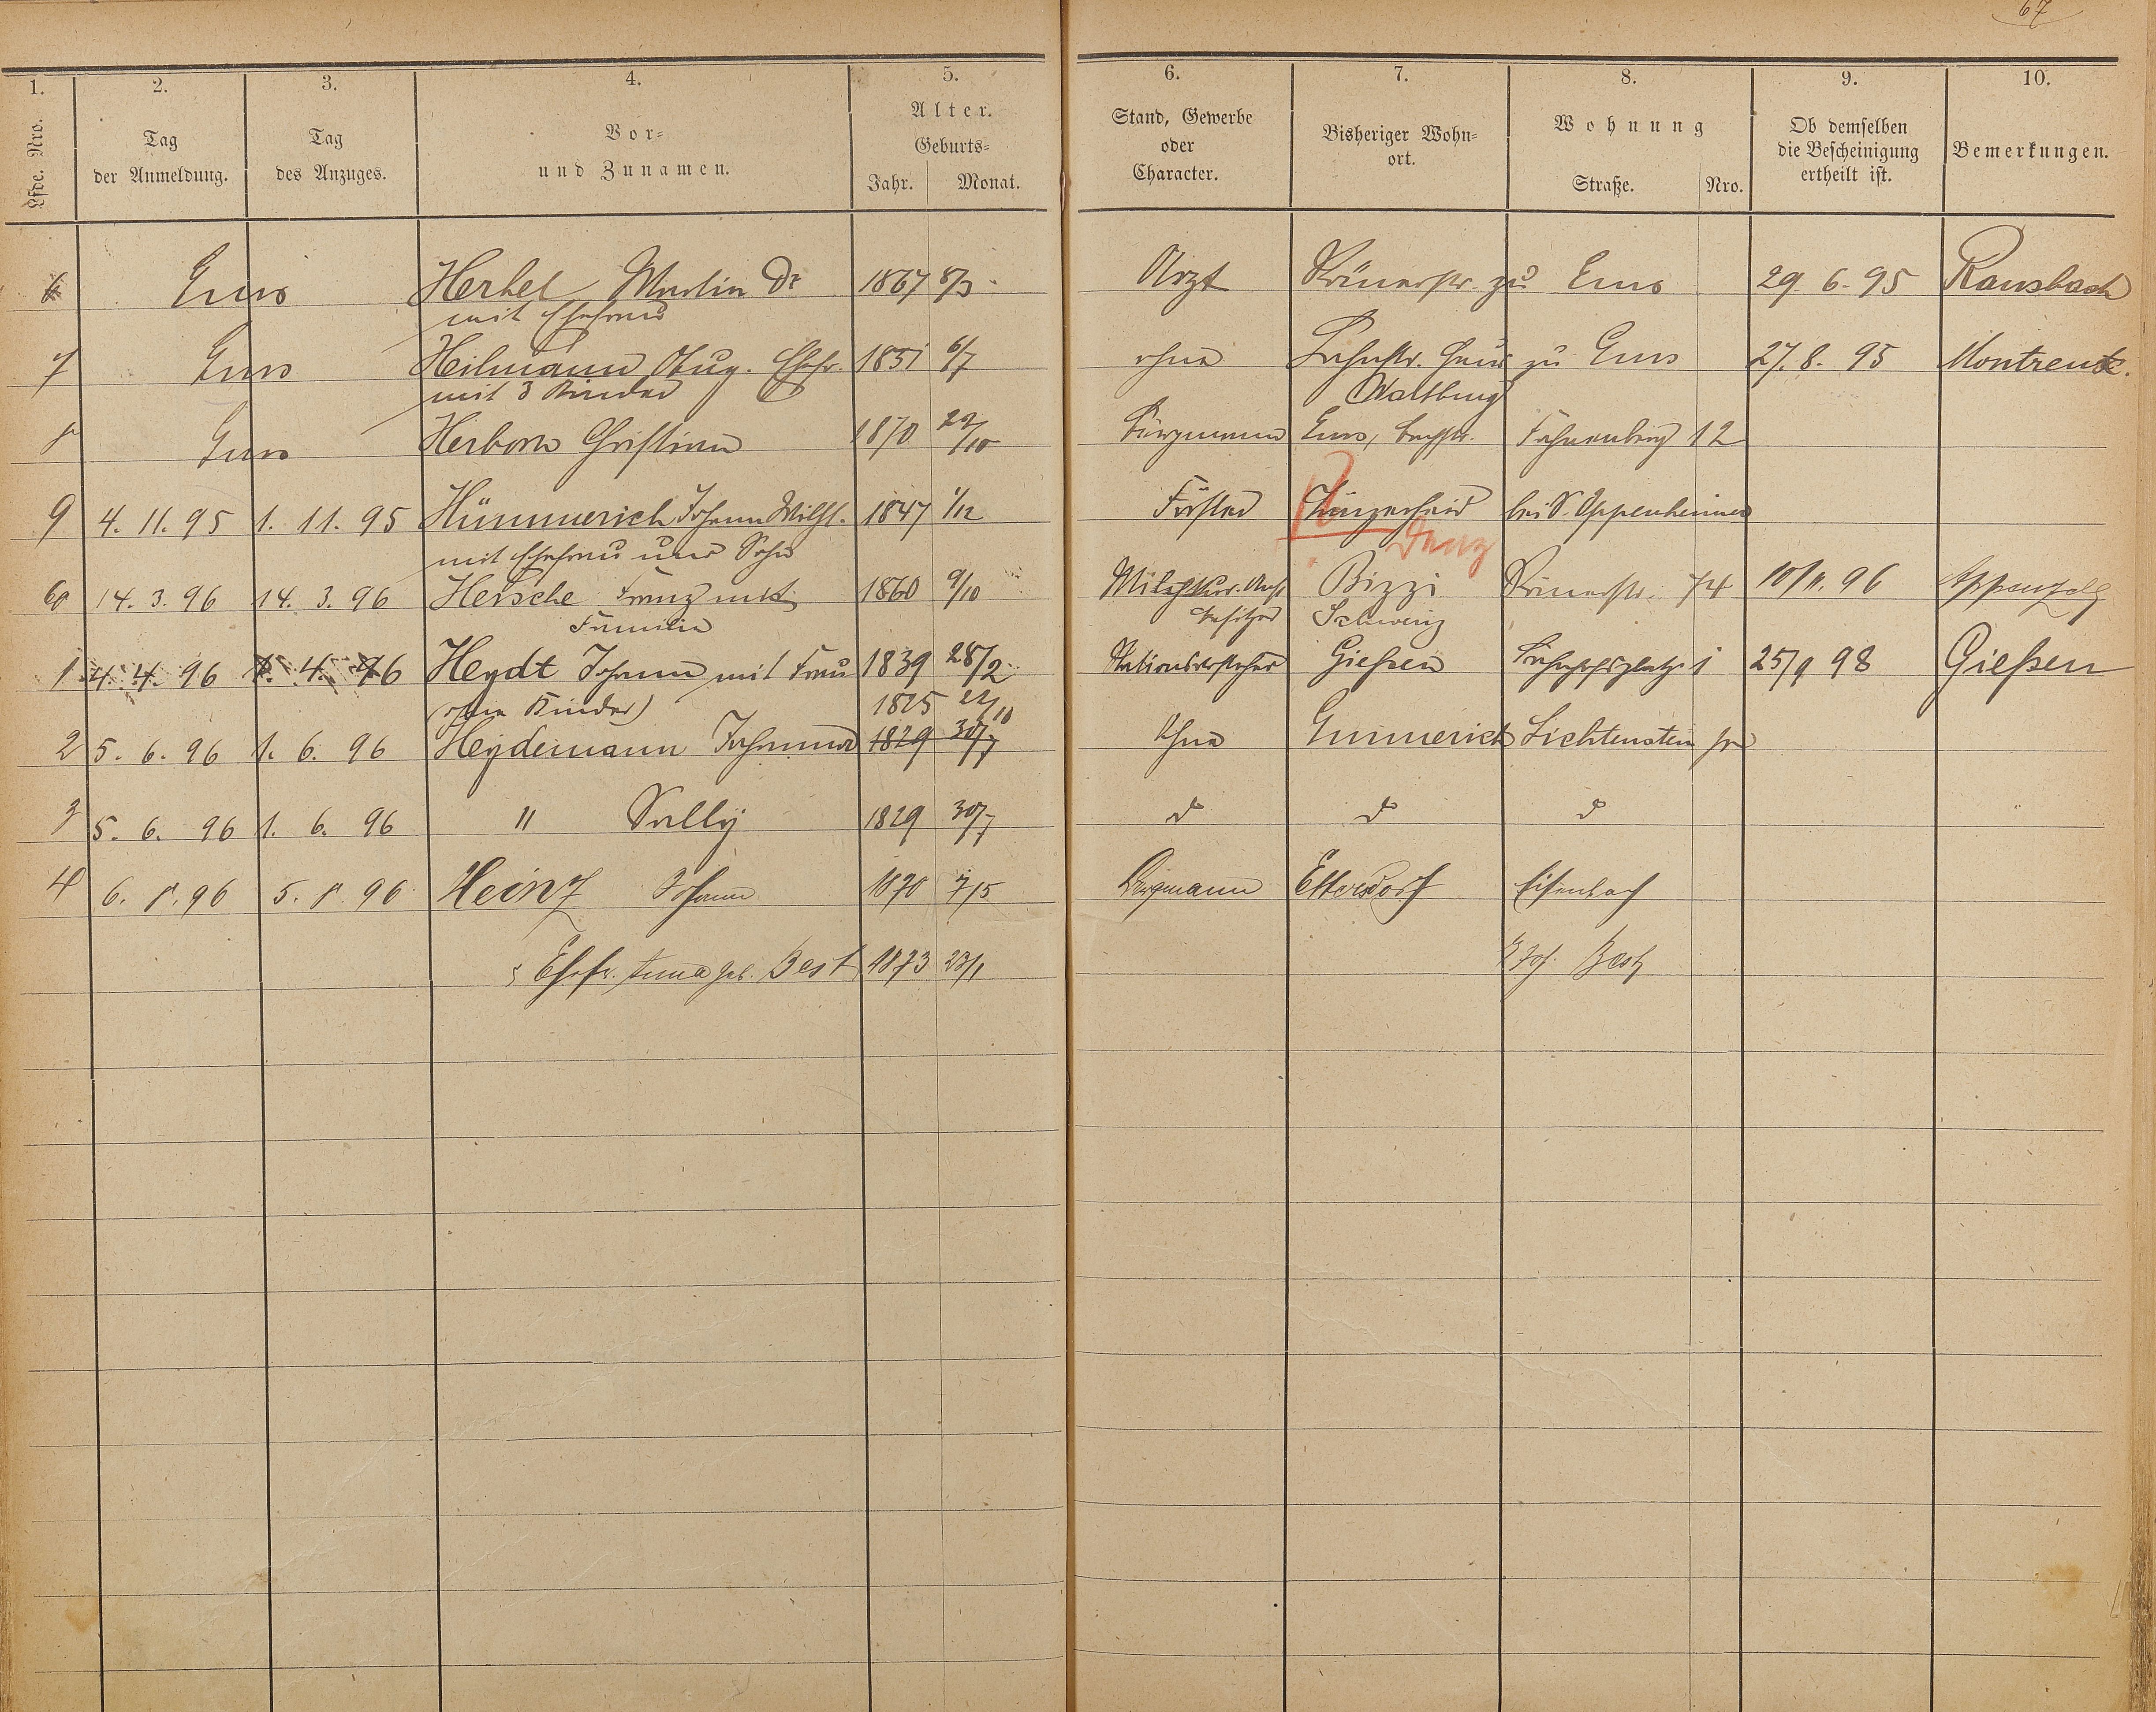 67
1. 2. 3. 4. 5. 6. 7. 8. 9. 10.
Lfde. Nro. Tag der Anmeldung. Tag des Anzuges. Vor- und Zunamen. Alter. Geburts- Jahr. Monat. Stand, Gewerbe oder Character. Bisheriger Wohn- ort. Wohnung Straße. Nro. Ob demselben die Bescheinigung ertheilt ist. Bemerkungen.
6 Ems Herkel Martin Dr 1867 8/3 Arzt Römerstr. zu Ems 29. 6. 95 Ransbach
mit Ehefrau
7 Ems Heilmann Aug. Ehefr. 1851 6/7 ohne Bahnstr. Haus zu Ems 27. 8. 95 Montreux.
mit 3 Kinder Waltburg
8 Ems Herborn Christian 1870 10 Ems, 12
9 4. 11. 95 1. 11. 95 Hümmerich Johann Wilh. 1847 1/12 Förster bei S. Oppenheimer
mit Ehefrau und Sohn
14. 3. 96 14. 3. 96 Hersche Franz mit 1860 9/10 Bizzi Römerstr. 74 10/11. 96 Appenzell
Familie besitzer Schweiz
1 4. 4. 96 4. 96 Heydt Johann mit Frau 1839 28/2 Stationsvorsteher Gießen Bahnhofsplatz 1 25/9 98 Gießen
(ohne Kinder) 1825 22/10
2 5. 6. 96 1. 6. 96 Heydemann 1829 30/7 Ohne Emmerich Lichtenstein
3 5. 6. 96 1. 6. 96 " Sally 1829 30/7 d d d
4 6. 8. 96 5. 8. 96 Heinz Johann 1870 7/5 Bergmann Ettersdorf Eisenbach
Ehefr. Anna geb. Best 1873 23/1 Joh. Best